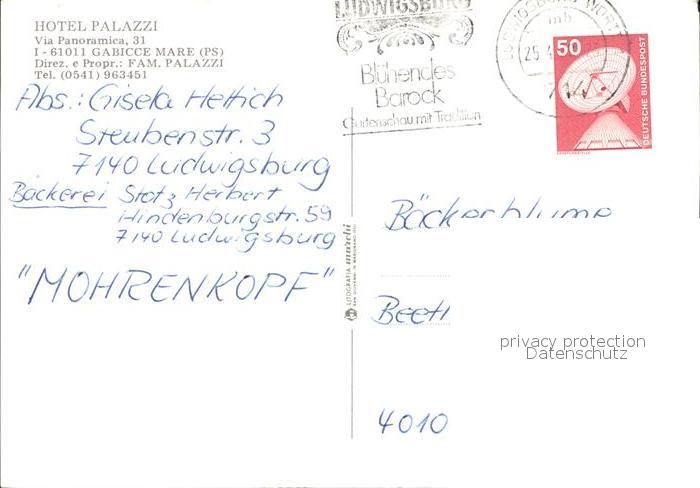 HOTEL PALAZZI
Via Panoramica, 31
I - 61011 GABICCE MARE (PS)
Direz. e Propr.: FAM. PALAZZI
Tel. (0541) 963451
Abs.: Gisela Hettich
Steubenstr. 3
7140 Ludwigsburg
Bäckerei Stotz Herbert
Hindenburgstr. 59
7140 Ludwigsburg
"MOHRENKOPF"
LUDWIGSBURG
Blühendes
Barock
Gartenschau mit Tradition
LUDWIGSBURG, WÜRTT
mb
25.
714
50
DEUTSCHE BUNDESPOST
LITOGRAFIA marchi
Bäckerblume
Beet
4010
privacy protection
Datenschutz